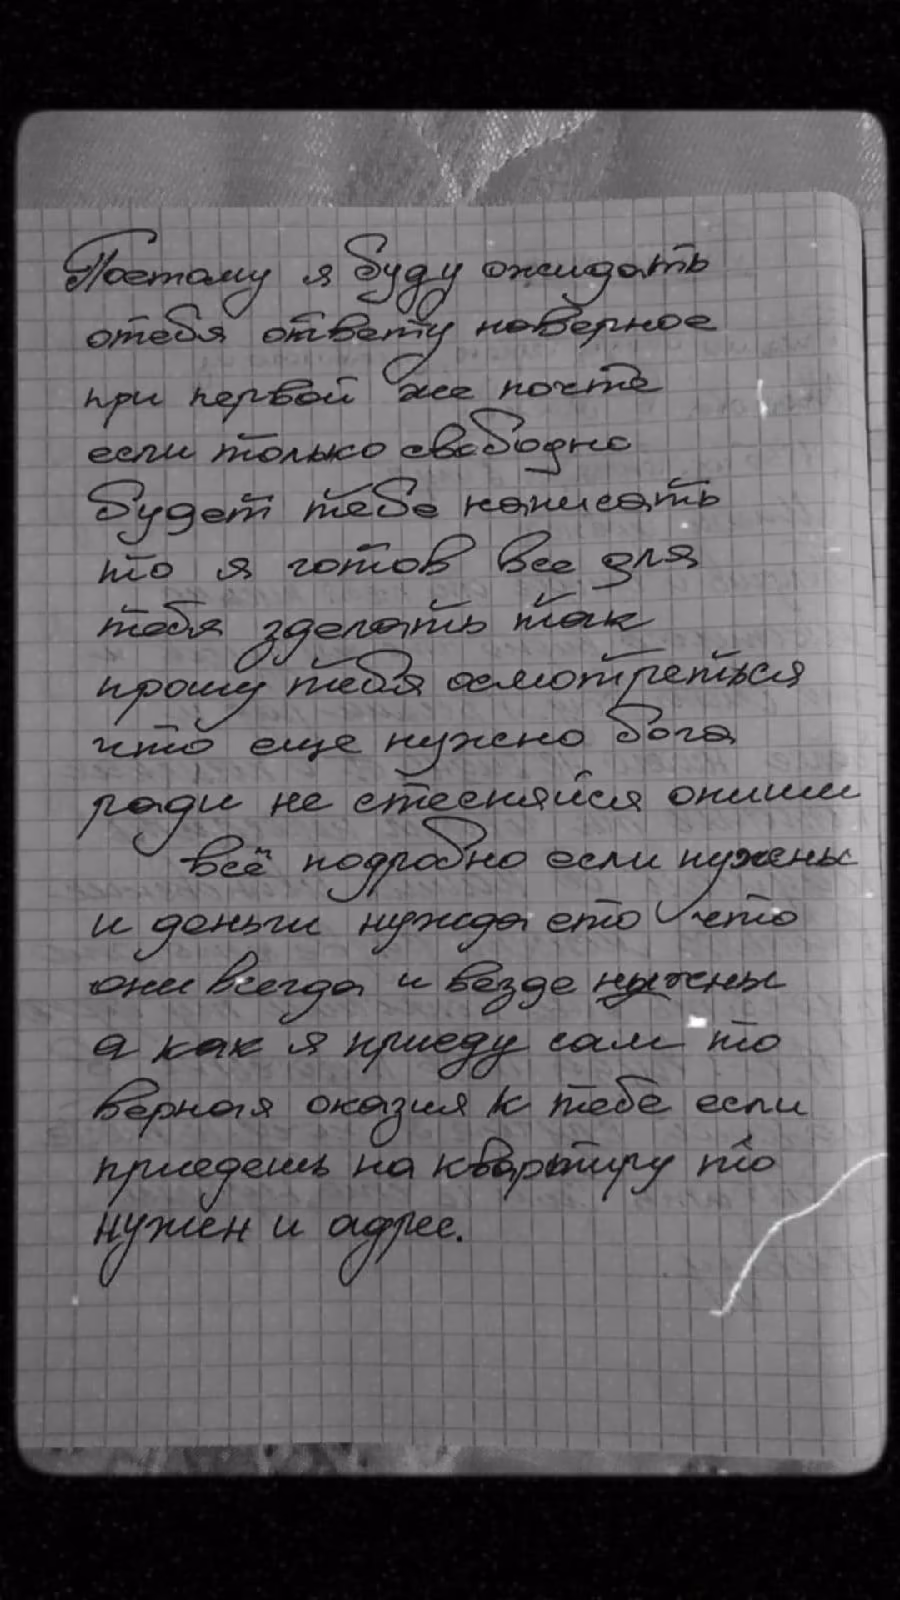 Поетому я буду ожидать
отебя ответу наверное
при первой же почте
если только свободно
будет тебе написать
то я готов все для
тебя зделать так
прошу тебя осмотреться
что еще нужно бога
ради не стесняйся опиши
всё подробно если нужны
и деньги нужда ето что
они всегда и везде нужны
а как я приеду сам то
верная оказия к тебе если
приедешь на квартиру то
нужен и адрес.